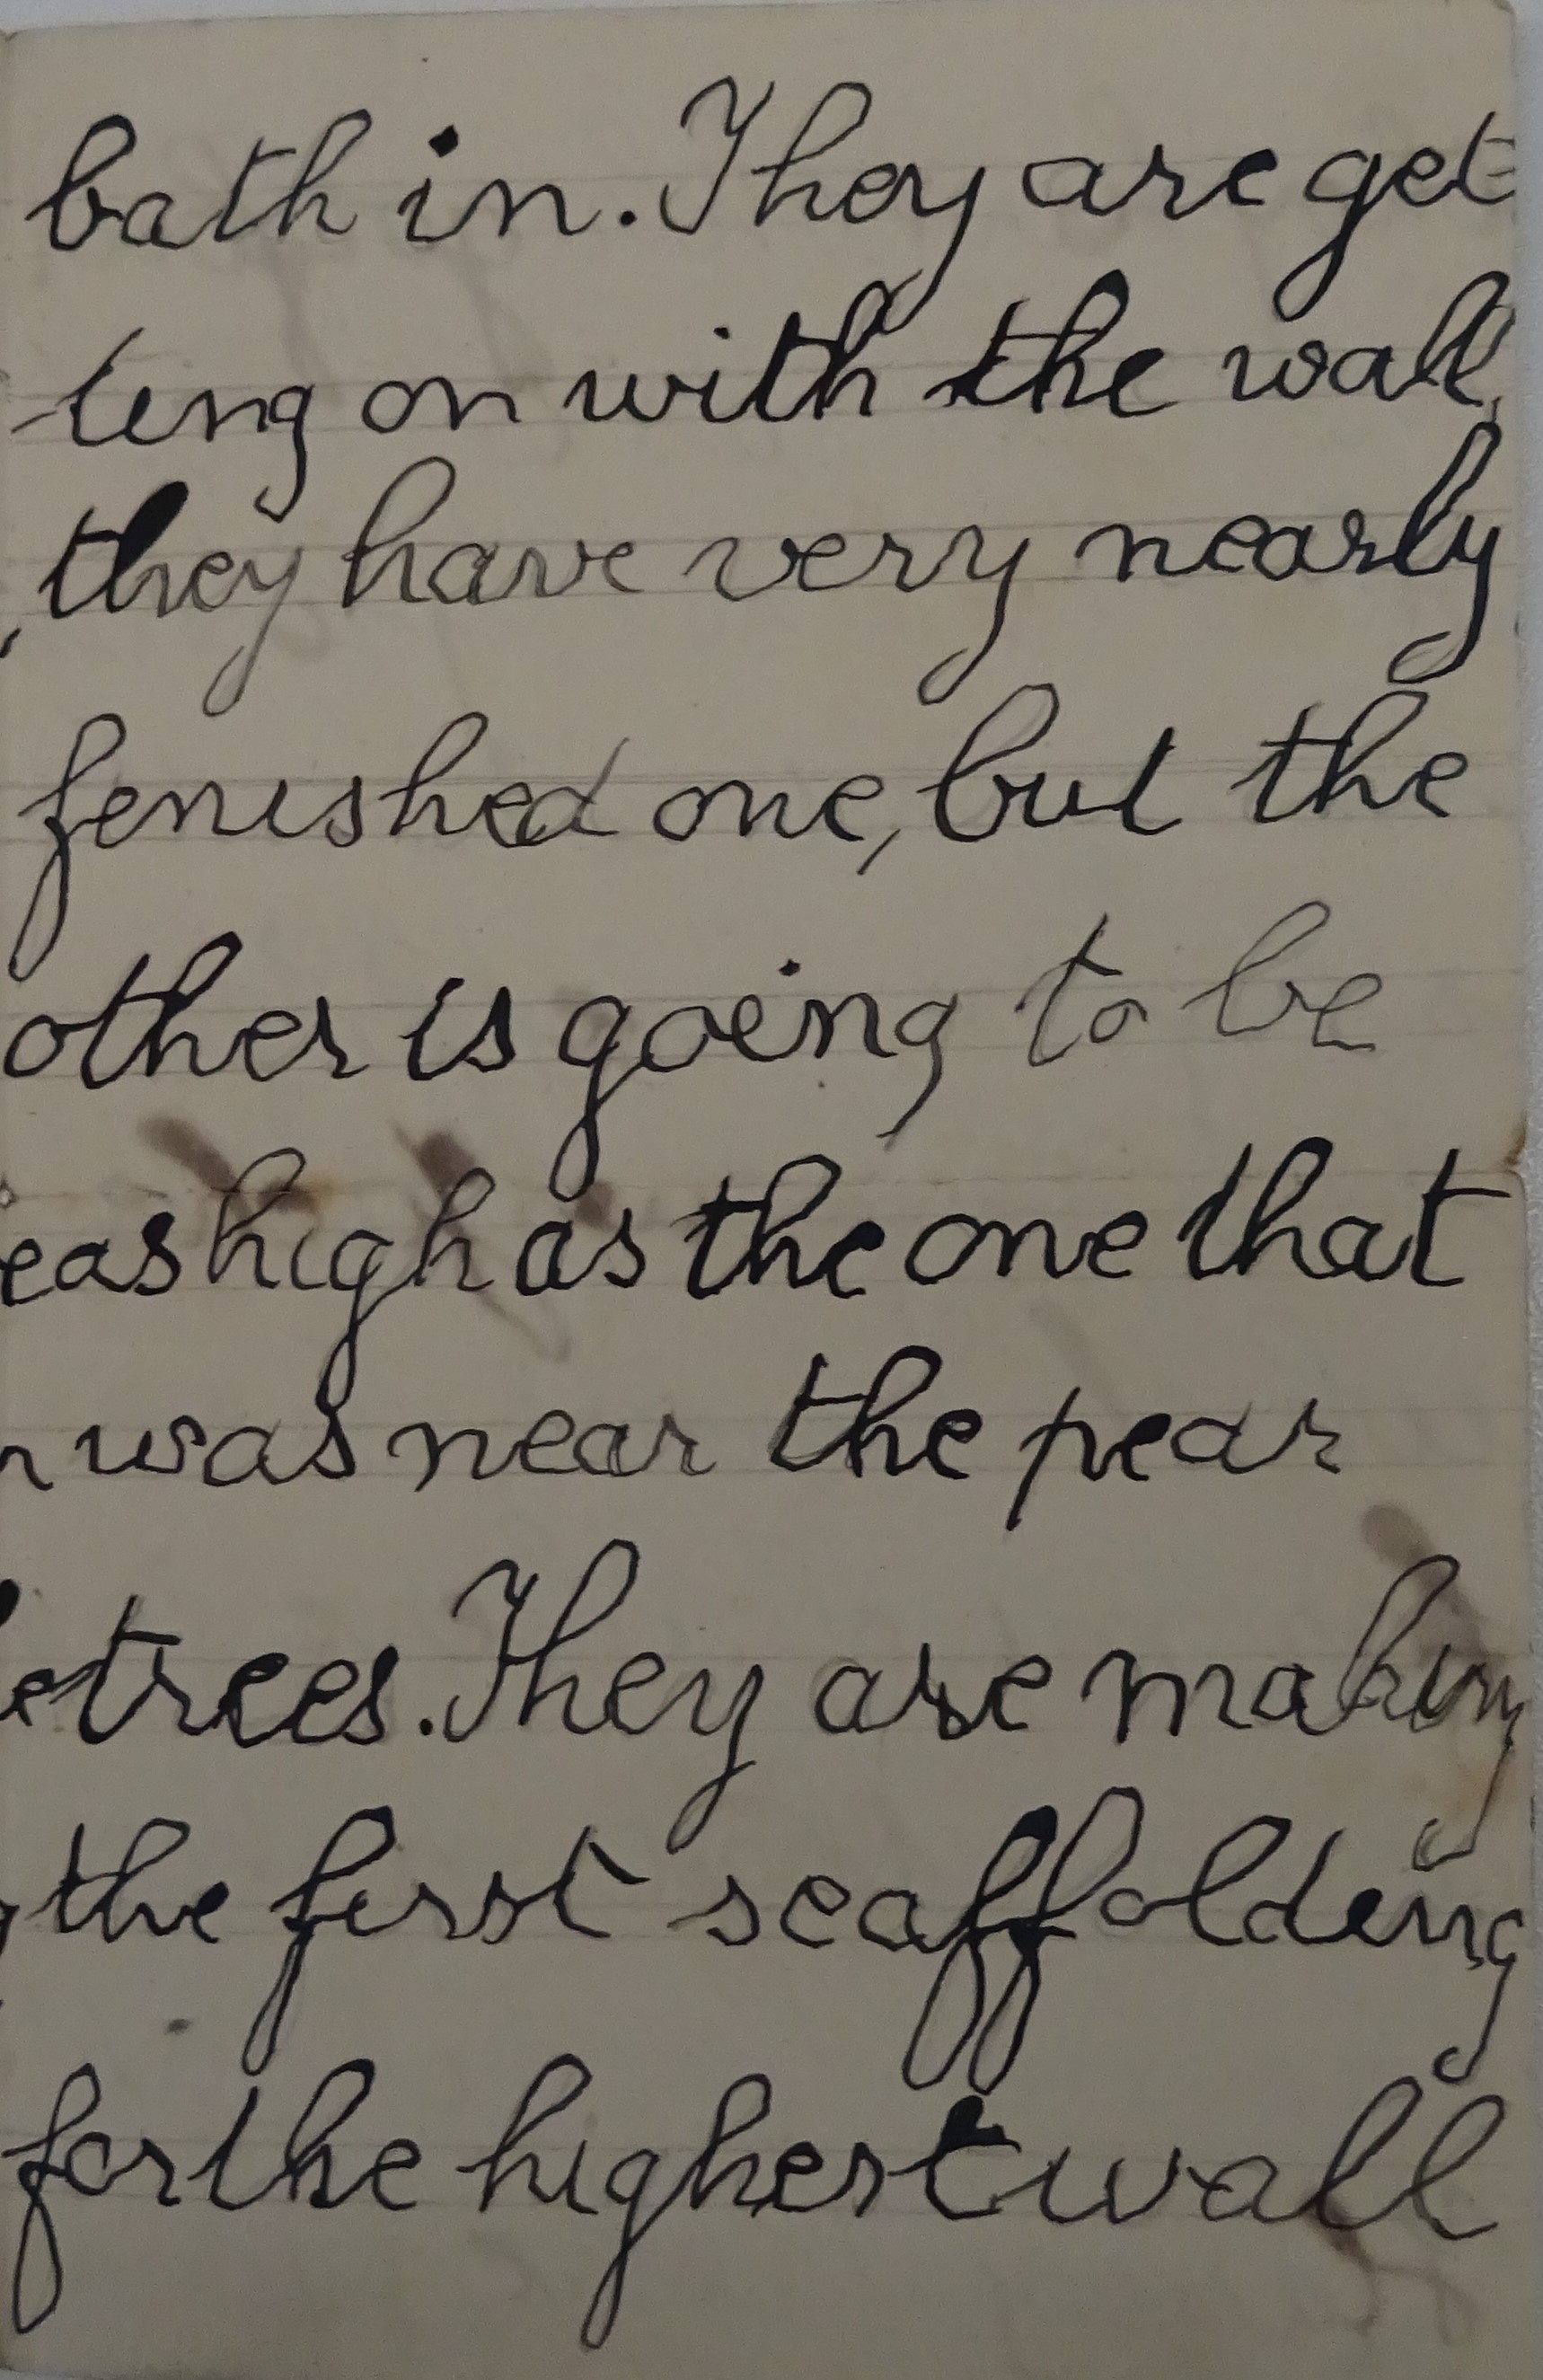 bath in. They are get
ting on with the wall,
they have very nearly
finished one, but the
other is going to be
as high as the one that
was near the pear
trees. They are making
the first scaffolding
for the highest wall